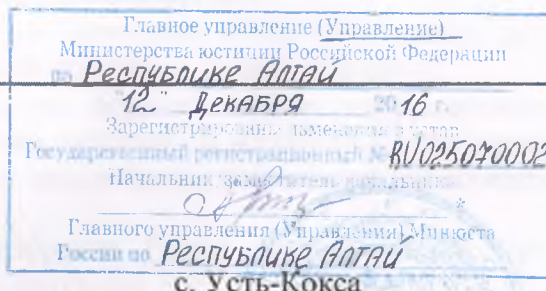 Главное управление (Управление)
Министерства юстиции Российской Федерации
по Республике Алтай
"12" Декабря 2016 г.
Зарегистрированы изменения в устав
Государственный регистрационный № RU025070002
Начальник заместитель начальника
Главного управления (Управления) Минюста
России по Республике Алтай
с. Усть-Кокса